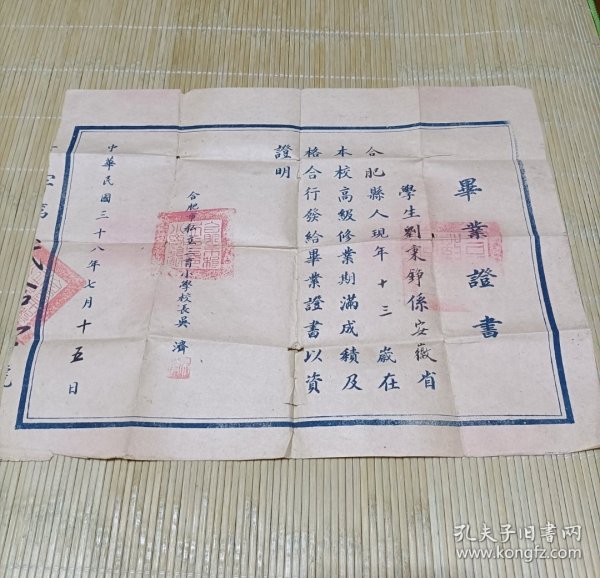 畢業證書
學生劉秉錚係安徽省
合肥縣人現年十三歲在
本校高級修業期滿成積及
格合行發給畢業證書以資
證明
合肥市私立三育小學校長吳濟
中華民國三十八年七月十五日
字第
號
孔夫子旧书网
www.kongfz.com